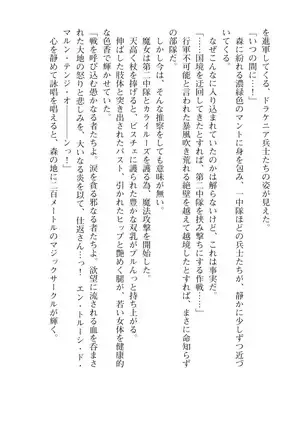 を進軍してくる、ドラケニア兵士たちの姿が見えた。
「いつの間に…！」
森に紛れる濃緑色のマントに身を包み、一中隊ほどの兵士たちが、静かに少しずつ近づいてくる。
なぜこんなに入り込まれていたのかは解らないけれど、これは事実だ。
「……国境を迂回して来たとすれば、第二中隊を挟み撃ちにする作戦…」
行軍不可能と言われた暴風吹き荒れる絶壁を越えて越境したとすれば、まさに命知らずの部隊だ。
しかし今は、そんな推察をしても意味が無い。
魔女は第二中隊とカライルーズを護る為、魔法攻撃を開始した。
天高く杖を掲げると、ビスチェに護られた豊かな双乳がプルんっと持ち上がる。
伸ばした肢体と突き出されたバスト、引かれたヒップと艶めく腿が、若い女体を健康的な色香で輝かせていた。
「戦を呼び込む愚かなる者たちよ。涙を貪る邪なる者たちよ。欲望に流される血を呑まされた大地の怒りと悲しみを、大いなる炎を以て、仕返さん…っ！　エン・トルーシ・ド・マルン・テンジ・オ————ンっ！」
心を静めて詠唱を唱えると、森の地に二百メートルのマジックサークルが輝く。